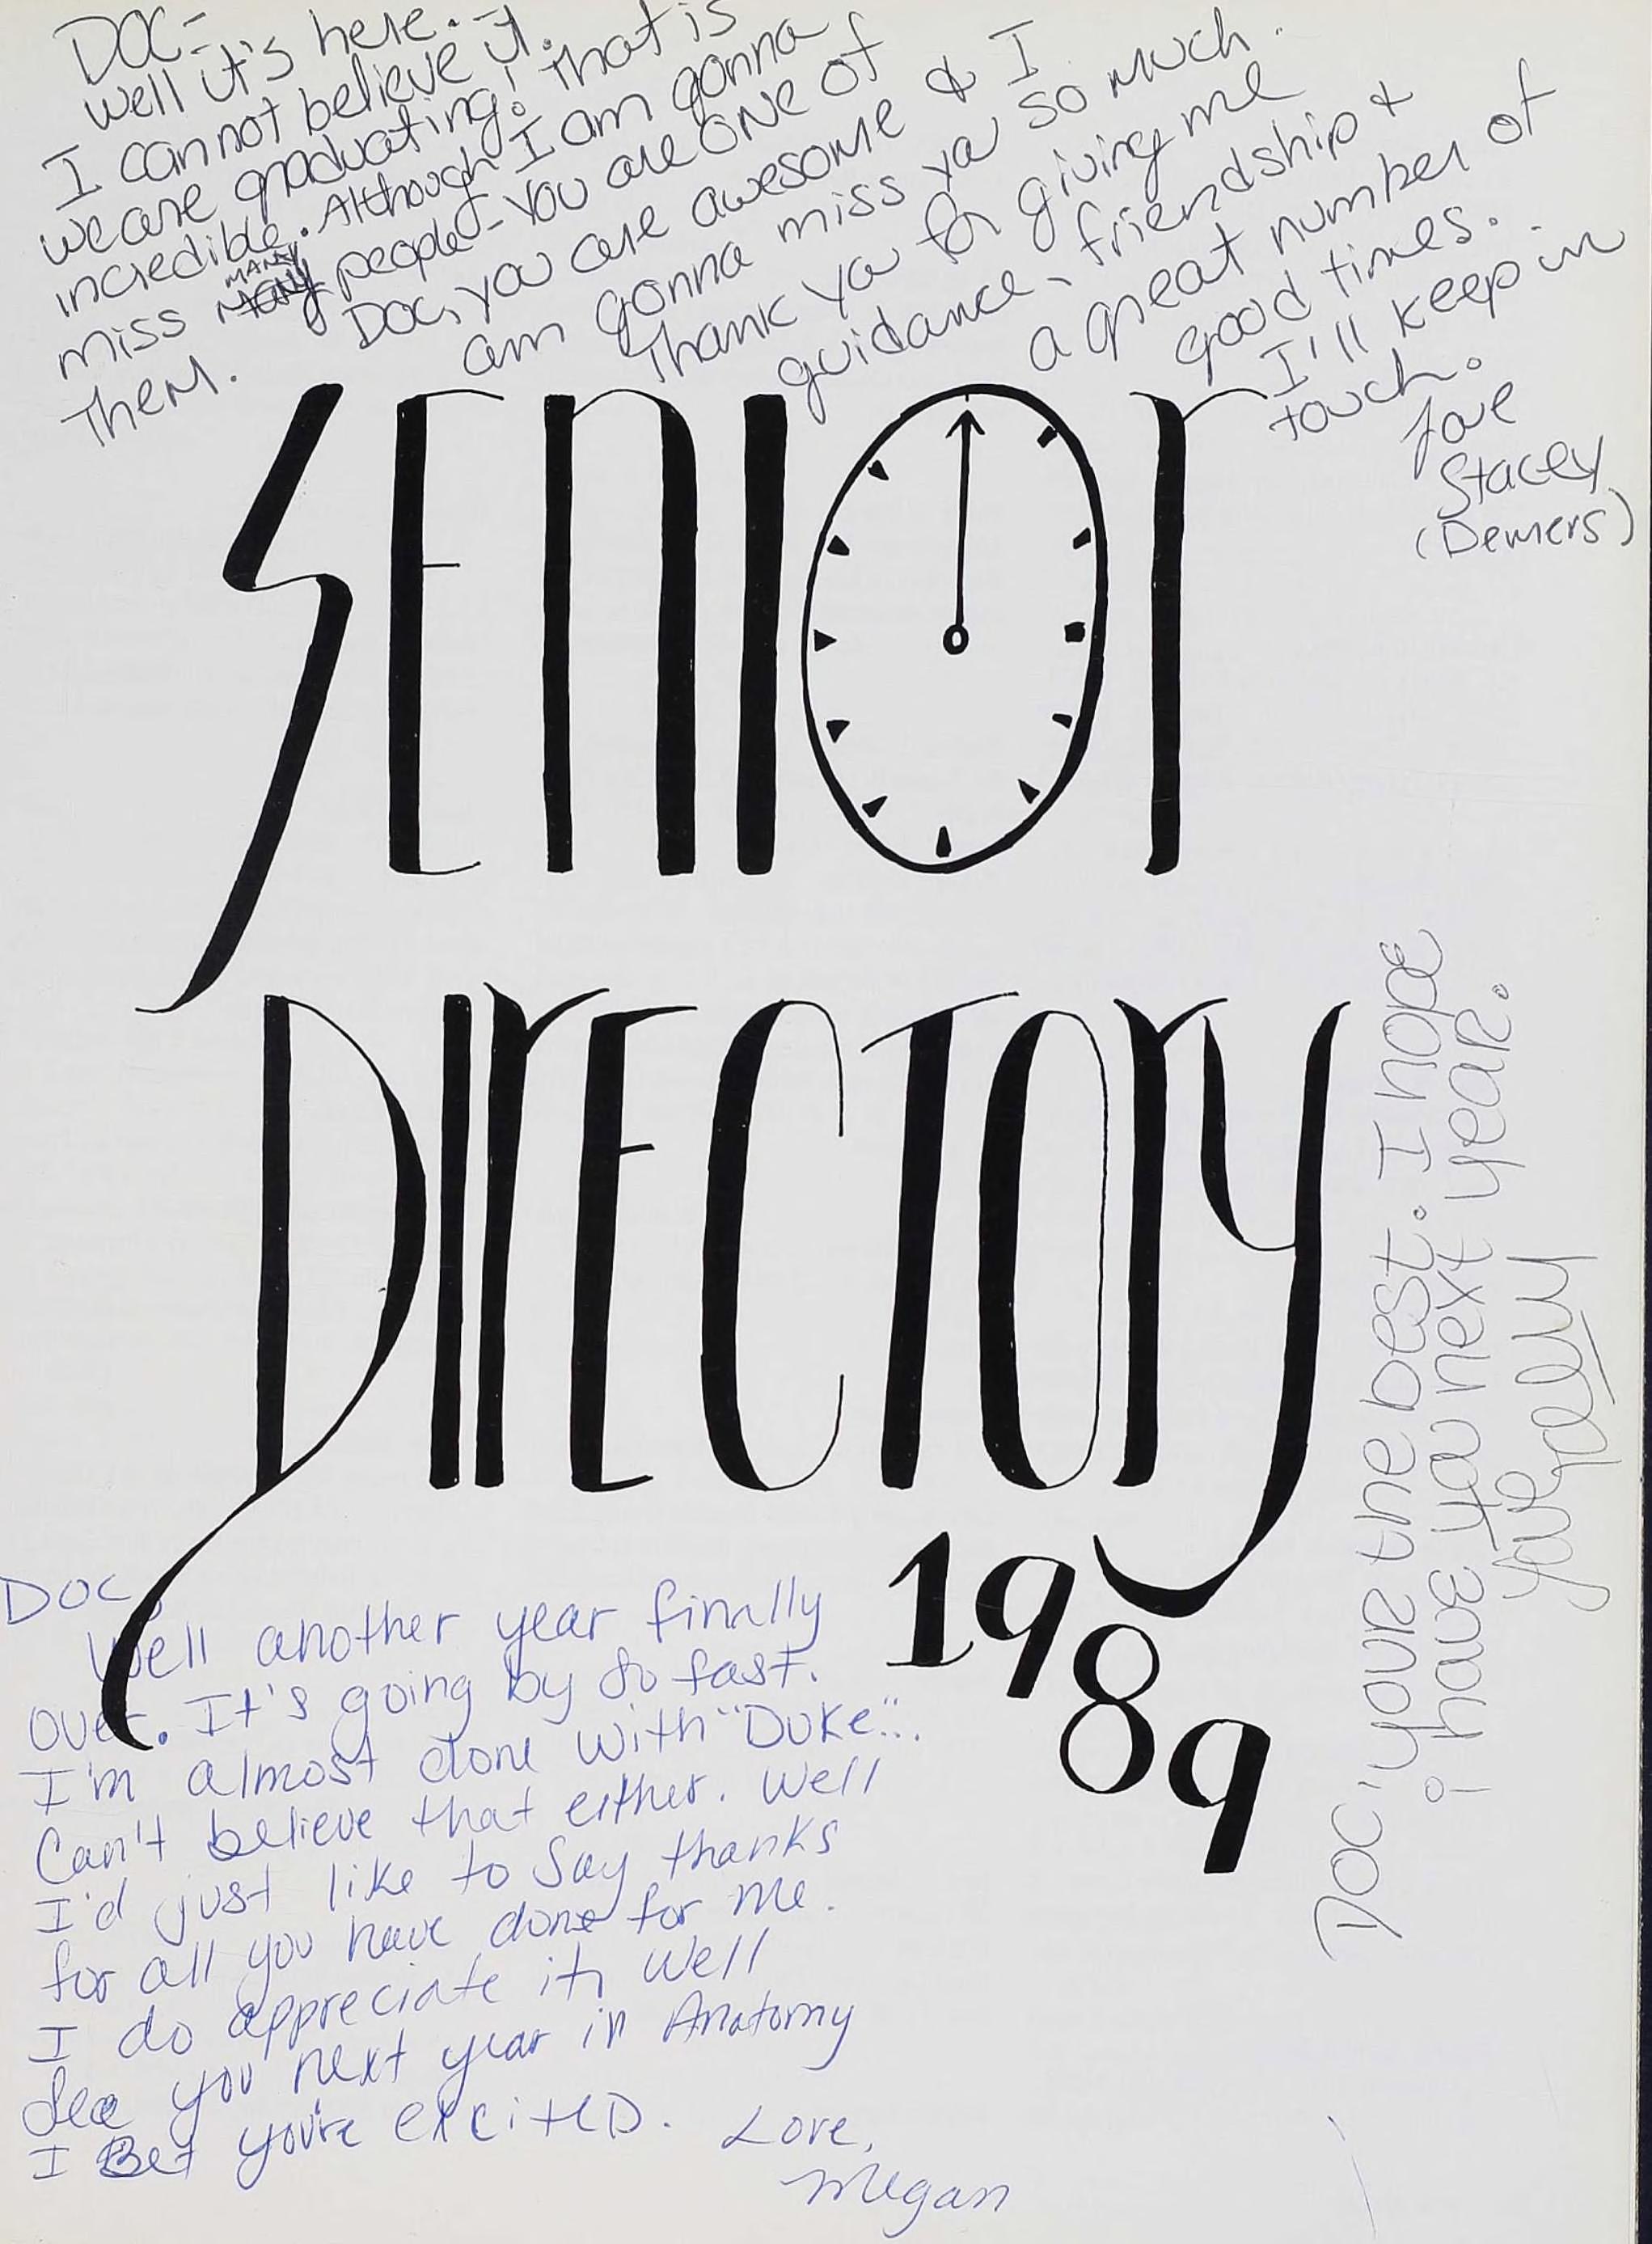 DOC-
Well it's here. I
I cannot believe it.
we are graduating! That is
incredible. Although I am gonna
miss MANY people - You are ONE of
Them. Doc, you are awesome & I
am gonna miss ya so much.
Thank ya for giving me
guidance, friendship &
a great number of
good times.
I'll keep in
touch.
Love
Stacey
(Demers)
SENIOr
DIrECTOrY
1989
Doc, your the best. I hope
i have ya next year.
Love
DOC,
Well another year finally
over. It's going by so fast.
I'm almost done with "Duke".
Can't believe that either. Well
I'd just like to Say thanks
for all you have done for me.
I do appreciate it. Well
See you next year in Anatomy
I Bet you're excitED. Love,
Megan